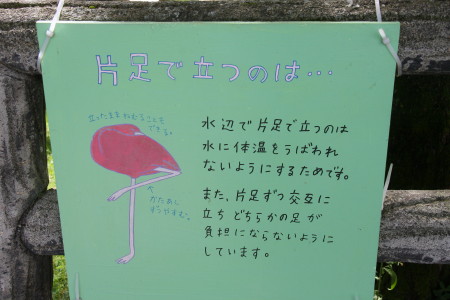 片足で立つのは…
立ったままねむることも
できる。
かたあし
ずつやすむ。
水辺で片足で立つのは
水に体温をうばわれ
ないようにするためです。
また、片足ずつ交互に
立ち どちらかの足が
負担にならないように
しています。